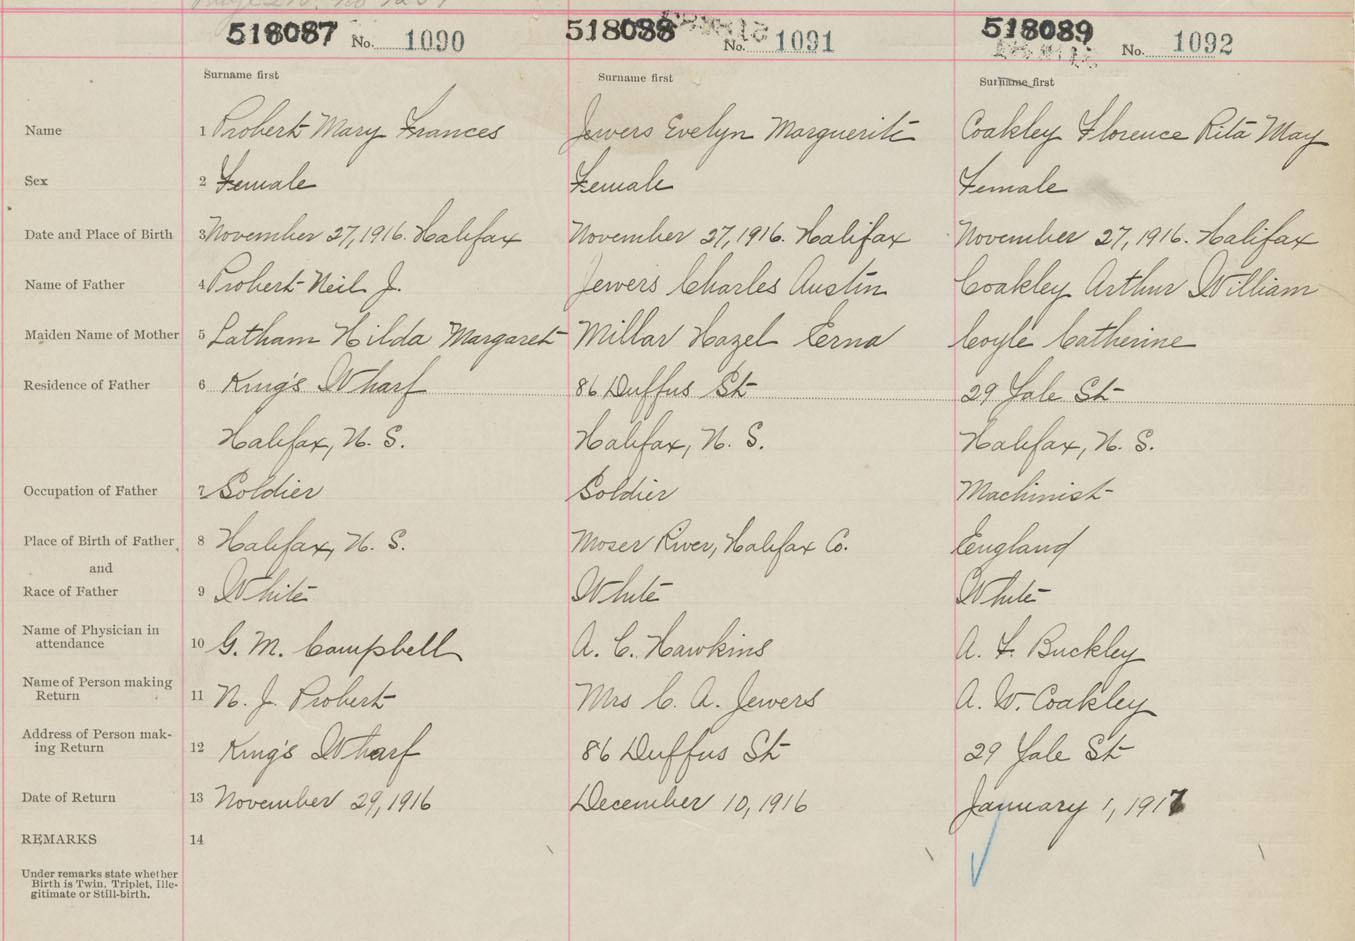 518087 No. 1090 518088 No. 1091 518089 No. 1092
Surname first Surname first Surname first
Name 1 Probert Mary Frances Jewers Evelyn Marguerite Coakley Florence Rita May
Sex 2 Female Female Female
Date and Place of Birth 3 November 27, 1916. Halifax November 27, 1916. Halifax November 27, 1916. Halifax
Name of Father 4 Probert Neil J. Jewers Charles Austin Coakley Arthur William
Maiden Name of Mother 5 Latham Hilda Margaret Millar Hazel Erna Coyle Catherine
Residence of Father 6 King's Wharf 86 Duffus St 29 Yale St
Halifax, N. S. Halifax, N. S. Halifax, N. S.
Occupation of Father 7 Soldier Soldier Machinist
Place of Birth of Father, 8 Halifax, N. S. Moser River, Halifax Co. England
and
Race of Father 9 White White White
Name of Physician in
attendance 10 G. M. Campbell A. C. Hawkins A. F. Buckley
Name of Person making
Return 11 N. J. Probert Mrs C. A. Jewers A. W. Coakley
Address of Person mak-
ing Return 12 King's Wharf 86 Duffus St 29 Yale St
Date of Return 13 November 29, 1916 December 10, 1916 January 1, 1917
REMARKS 14
Under remarks state whether
Birth is Twin, Triplet, Ille-
gitimate or Still-birth.